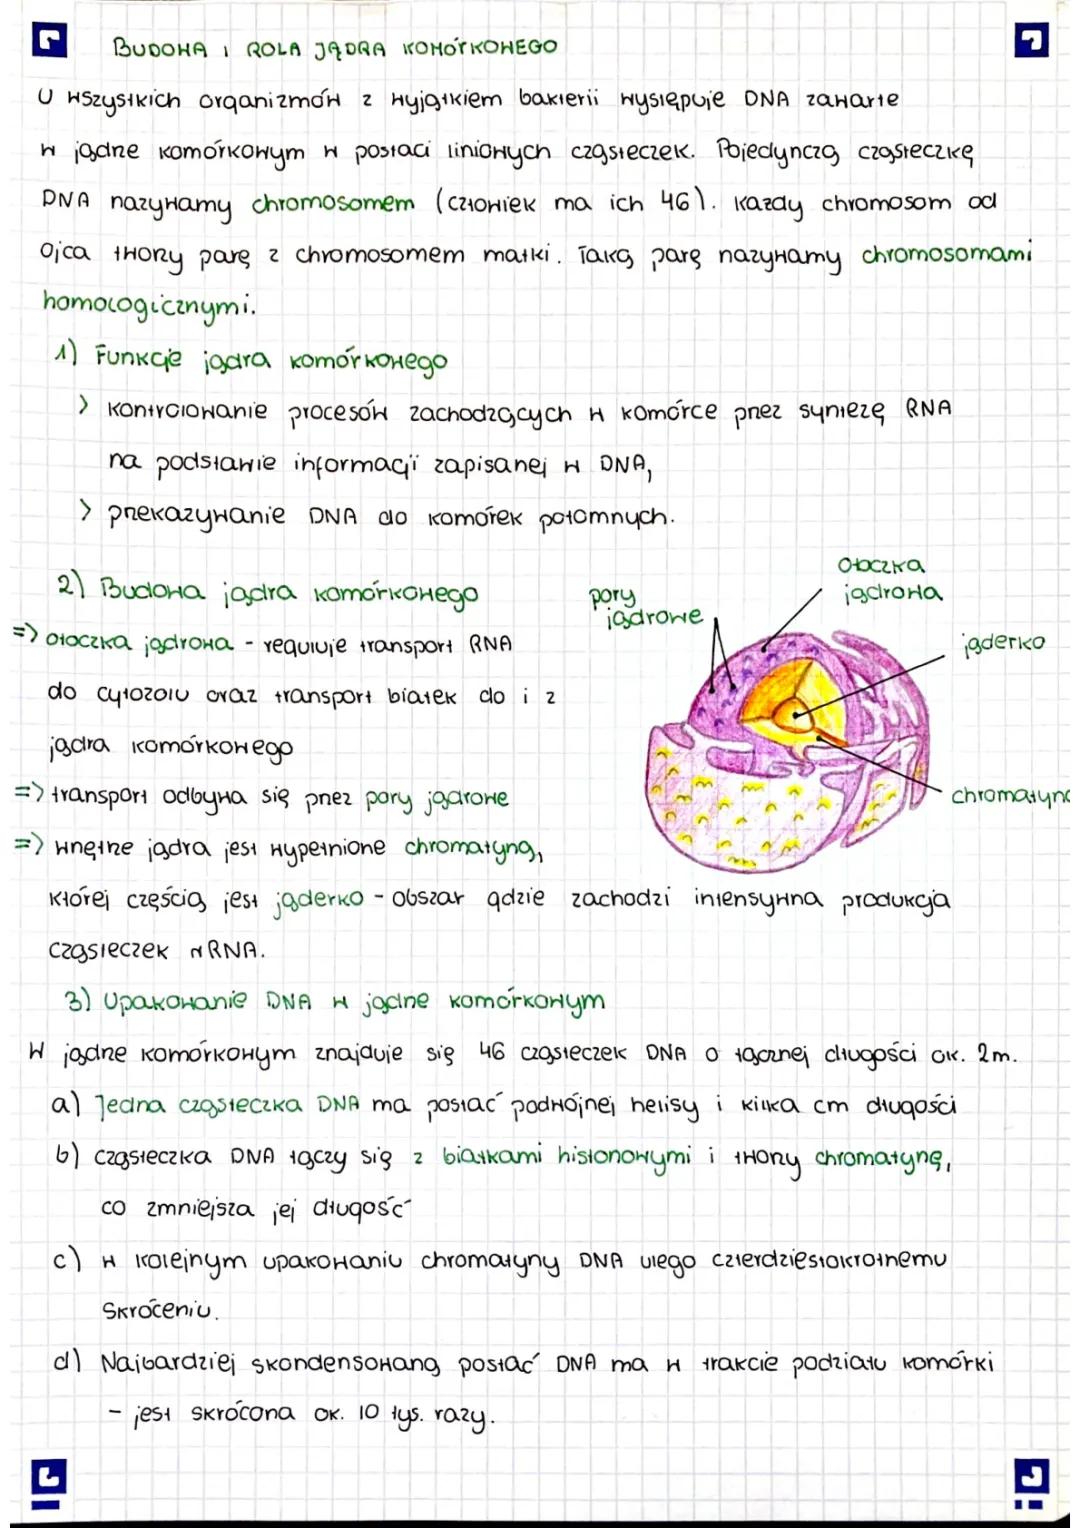 BUDOWA I ROLA JĄDRA KOMÓRKOWEGO
U wszystkich organizmów z wyjątkiem bakterii występuje DNA zawarte
w jądrze komórkowym w postaci liniowych cząsteczek. Pojedynczą cząsteczkę
DNA nazywamy chromosomem (człowiek ma ich 46). Każdy chromosom od
ojca tworzy parę z chromosomem matki. Taką parę nazywamy chromosomami
homologicznymi.
1) Funkcje jądra komórkowego
> kontrolowanie procesów zachodzących w komórce przez syntezę RNA
na podstawie informacji zapisanej w DNA,
> przekazywanie DNA do komórek potomnych.
2) Budowa jądra komórkowego
=> otoczka jądrowa - reguluje transport RNA
do cytozolu oraz transport białek do i z
jądra komórkowego
=> transport odbywa się przez pory jądrowe
=> wnętrze jądra jest wypełnione chromatyną,
której częścią jest jąderko - obszar gdzie zachodzi intensywna produkcja
cząsteczek rRNA.
pory
jądrowe
otoczka
jądrowa
jąderko
chromatyna
3) Upakowanie DNA w jądrze komórkowym
W jądrze komórkowym znajduje się 46 cząsteczek DNA o łącznej długości ok. 2m.
a) Jedna cząsteczka DNA ma postać podwójnej helisy i kilka cm długości
b) cząsteczka DNA łączy się z białkami histonowymi i tworzy chromatynę,
co zmniejsza jej długość
c) w kolejnym upakowaniu chromatyny DNA ulega czterdziestokrotnemu
skróceniu.
d) Najbardziej skondensowaną postać DNA ma w trakcie podziału komórki
- jest skrócona ok. 10 tys. razy.